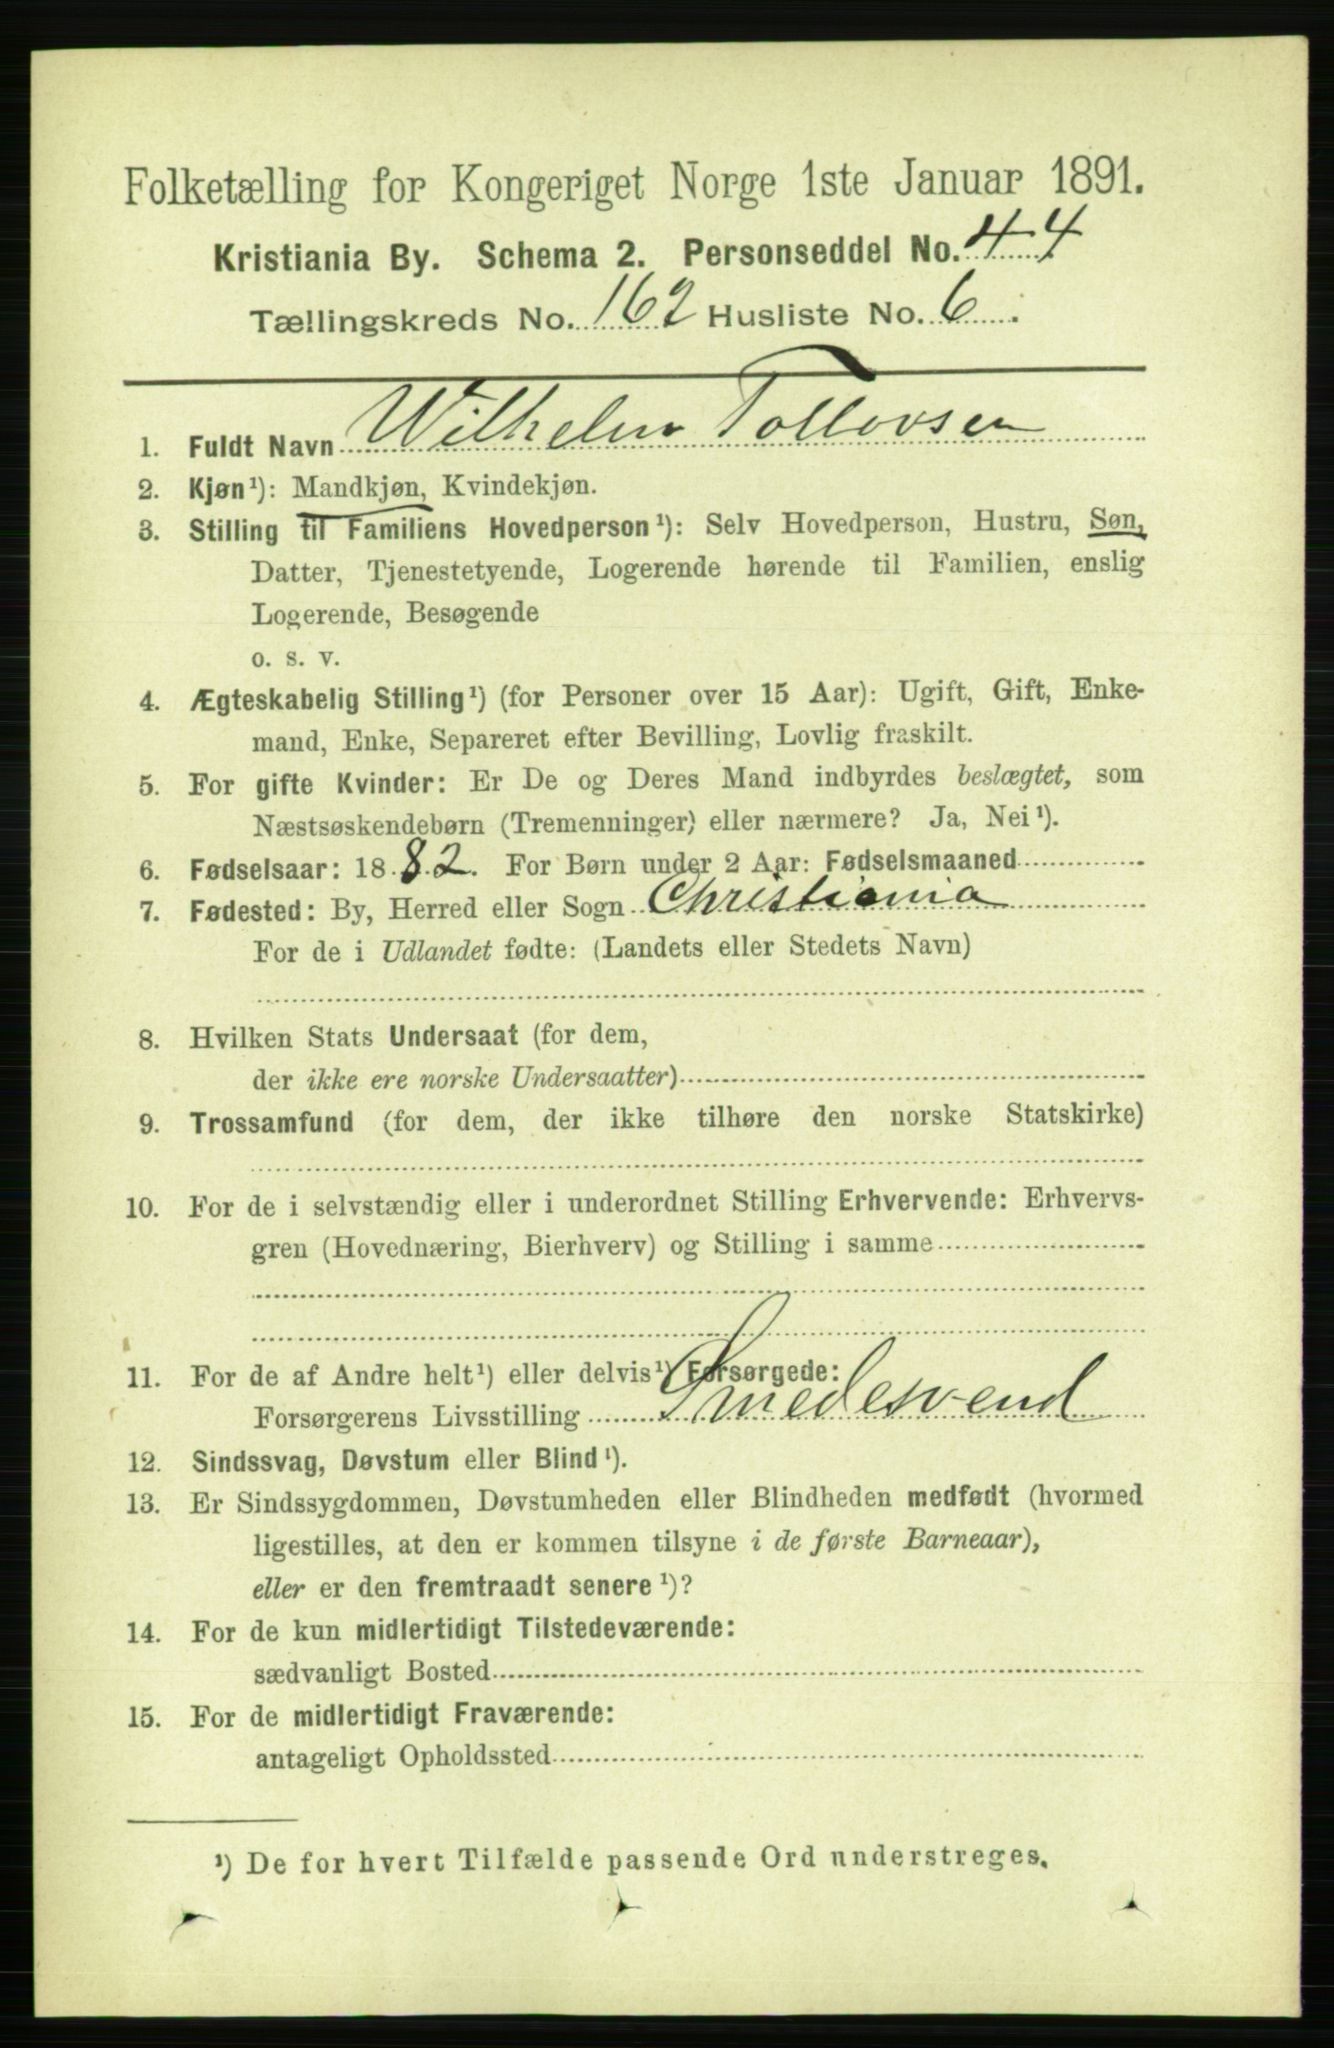 Folketælling for Kongeriget Norge 1ste Januar 1891.
Kristiania By. Schema 2. Personseddel No. 44
Tællingskreds No. 162 Husliste No. 6.
1. Fuldt Navn Wilhelm Tollovsen
2. Kjøn¹): Mandkjøn, Kvindekjøn.
3. Stilling til Familiens Hovedperson¹): Selv Hovedperson, Hustru, Søn,
Datter, Tjenestetyende, Logerende hørende til Familien, enslig
Logerende, Besøgende
o. s. v.
4. Ægteskabelig Stilling¹) (for Personer over 15 Aar): Ugift, Gift, Enke-
mand, Enke, Separeret efter Bevilling, Lovlig fraskilt.
5. For gifte Kvinder: Er De og Deres Mand indbyrdes beslægtet, som
Næstsøskendebørn (Tremenninger) eller nærmere? Ja, Nei¹).
6. Fødselsaar: 1882. For Børn under 2 Aar: Fødselsmaaned
7. Fødested: By, Herred eller Sogn Christiania
For de i Udlandet fødte: (Landets eller Stedets Navn)
8. Hvilken Stats Undersaat (for dem,
der ikke ere norske Undersaatter)
9. Trossamfund (for dem, der ikke tilhøre den norske Statskirke)
10. For de i selvstændig eller i underordnet Stilling Erhvervende: Erhvervs-
gren (Hovednæring, Bierhverv) og Stilling i samme
11. For de af Andre helt¹) eller delvis¹) Forsørgede:
Forsørgerens Livsstilling Smedesvend
12. Sindssvag, Døvstum eller Blind¹).
13. Er Sindssygdommen, Døvstumheden eller Blindheden medfødt (hvormed
ligestilles, at den er kommen tilsyne i de første Barneaar),
eller er den fremtraadt senere¹)?
14. For de kun midlertidigt Tilstedeværende:
sædvanligt Bosted
15. For de midlertidigt Fraværende:
antageligt Opholdssted
¹) De for hvert Tilfælde passende Ord understreges.